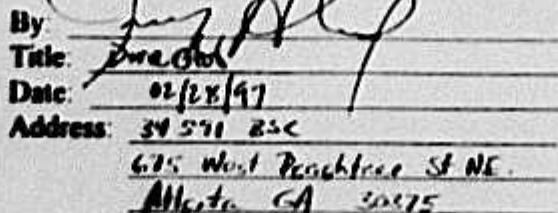 By
Title: Director
Date: 02/28/97
Address: 34S91 BSC
675 West Peachtree St NE.
Atlanta GA 30375